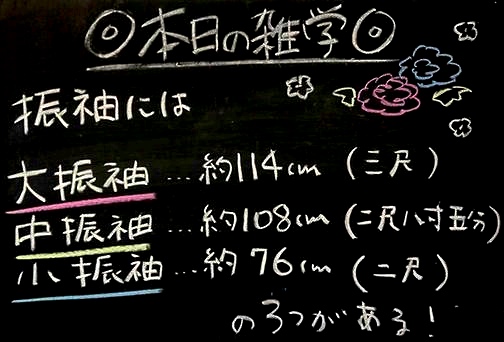 ◎本日の雑学◎
振袖には
大振袖…約114cm（三尺）
中振袖…約108cm（二尺八寸五分）
小振袖…約76cm（二尺）
の3つがある！